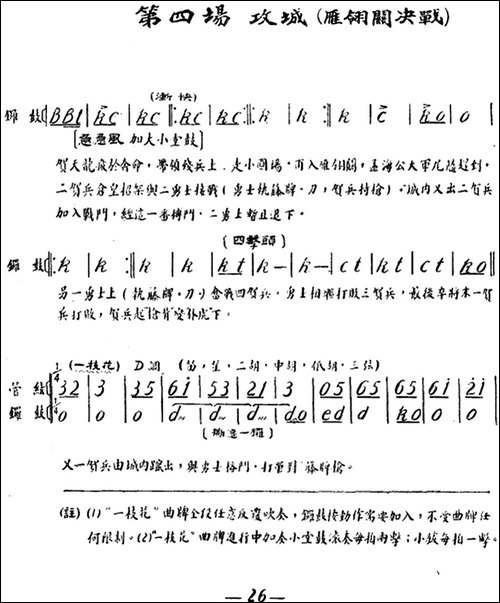 第四場 攻城(雁翎關決戰)
(漸快)
鑼鼓 BBt | kc | kc | kc | kc | k | k | k | c | ko | o |
[急急風 加大小堂鼓]
賀天龍 帶領殘兵上.走小圓場,再入雁翎關,
二賀兵 與二勇士接戰(勇士執藤牌.刀,賀兵持槍).城內又出二賀兵
加入戰鬥,經這一番搏鬥.二勇士暫且退下。
[四擊頭]
鑼鼓 k | k | k | k | kt | k- | k- | ct | kt | ct | ko
另一勇士上(執藤牌.刀)會戰四賀兵,勇士相繼打敗三賀兵,最後卒將末一賀
兵打敗,賀兵起 下。
1/4 (一枝花) D調 (笛,笙,二胡,中胡,低胡,三弦)
管絃 32 | 3 | 35 | 6i | 53 | 21 | 3 | 05 | 65 | 65 | 6i | 2i
鑼鼓 1/4 o | o | o | d | d | d | do | ed | d | ko | o | o
又一賀兵由城內蹤出,與勇士格鬥.打單對"藤牌槍。
(註) (1) "一枝花" 曲牌全段任意反覆吹奏,鑼鼓按動作需要加入,不受曲牌任
何限制。(2) "一枝花" 曲牌進行中加奏小堂鼓滾奏每拍兩擊;小鈸每拍一擊。
—26—